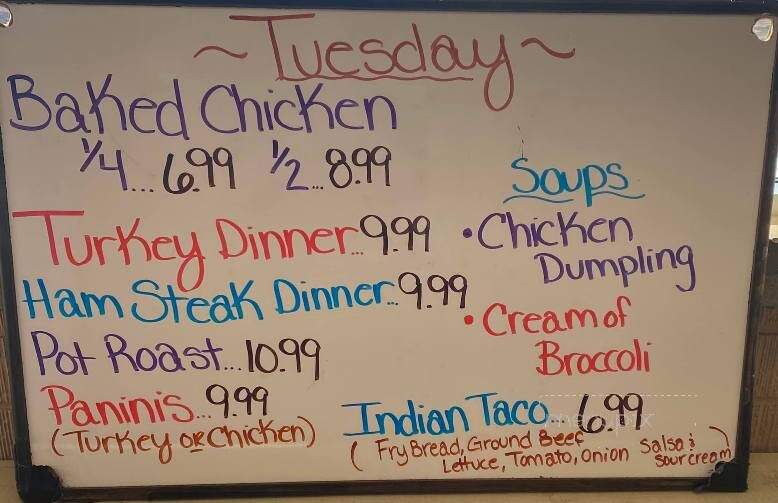 ~Tuesday~
Baked Chicken
1/4...6.99 1/2...8.99
Soups
Turkey Dinner...9.99
• Chicken
Dumpling
Ham Steak Dinner...9.99
• Cream of
Broccoli
Pot Roast...10.99
Paninis...9.99
(Turkey or Chicken)
Indian Taco...6.99
(Fry Bread, Ground Beef
Lettuce, Tomato, Onion Salsa & sour cream)